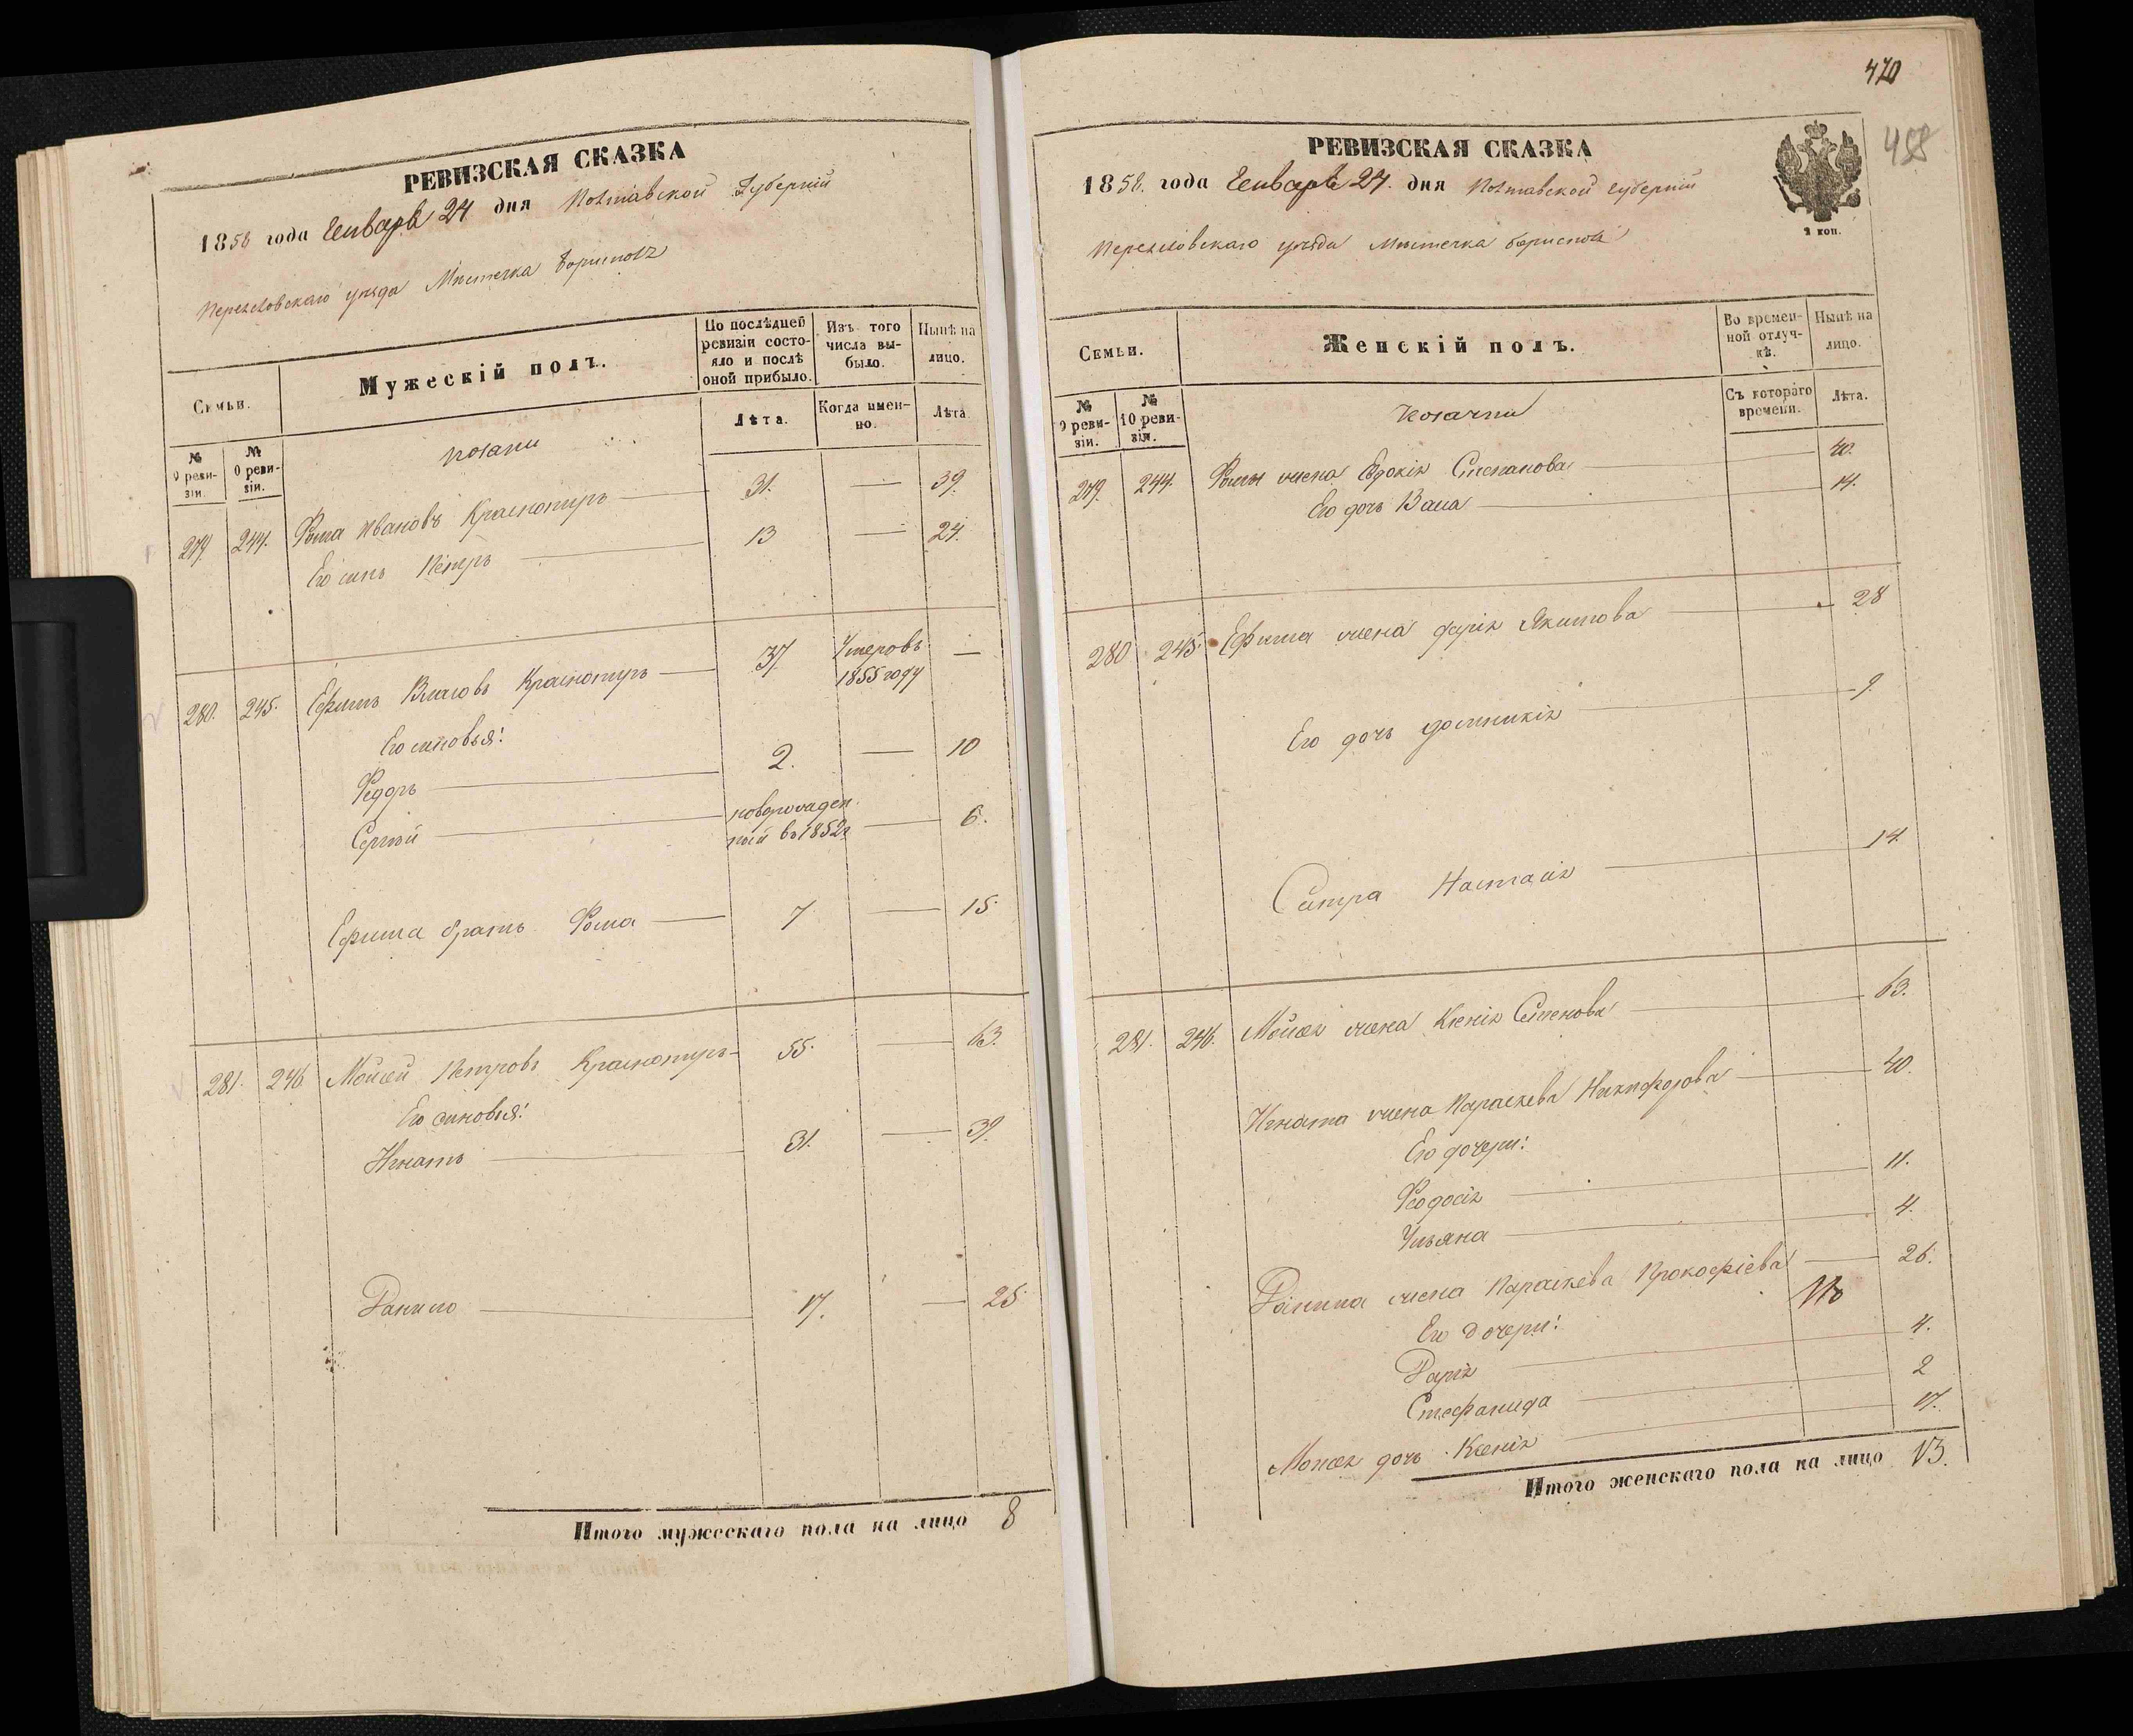 РЕВИЗСКАЯ СКАЗКА
1858 года Генваря 24 дня Полтавской Губерніи
Переяславскаго уезда Мистечка Борисполя
Семьи.
Мужескій полъ.
По послѣдней ревизіи состояло и послѣ оной прибыло.
Изъ того числа выбыло.
Нынѣ на лицо.
№ 9 ревизіи.
№ 10 ревизіи.
козаки
Лѣта.
Когда именно.
Лѣта
279. 244. Фома Ивановъ Красноперъ 31. — 39.
Его синъ Петръ 13 — 24.
280. 245. Ефимъ Власовъ Красноперъ 37. Умеръ въ 1855 году —
Его сыновья:
Федоръ 2. — 10
Сергѣй новорожденный въ 1852 г — 6.
Ефима братъ Фома 7 — 15.
281. 246. Мойсей Петровъ Красноперъ 55. — 63.
Его синовья:
Игнатъ 31. — 39.
Данило 17. — 25.
Итого мужескаго пола на лицо 8
470
458
РЕВИЗСКАЯ СКАЗКА
2 коп.
1858. года Генваря 24. дня Полтавской губерніи
Переяславскаго уезда Мистечка Борисполя
Семьи.
Женскій полъ.
Во временной отлучкѣ.
Нынѣ на лицо.
№ 9 ревизіи.
№ 10 ревизія.
Козачки
Съ котораго времени.
Лѣта.
279. 244. Фомы жена Евдокія Степанова 40.
Его дочь Васа 14.
280 245. Ефима жена Дарія Якимова 28
Его дочь Домникія 9.
Систра Настасія 14
281. 246. Мойсея жена Ксенія Семенова 63.
Игната жена Параскева Никифорова 40.
Его дочери:
Феодосія 11.
Ульяна 4.
Данила жена Параскева Прокофіева 26.
Его дочери:
Дарія 4.
Стефанида 2
Мойсея дочь Ксенія 17.
Итого женскаго пола на лицо 13.